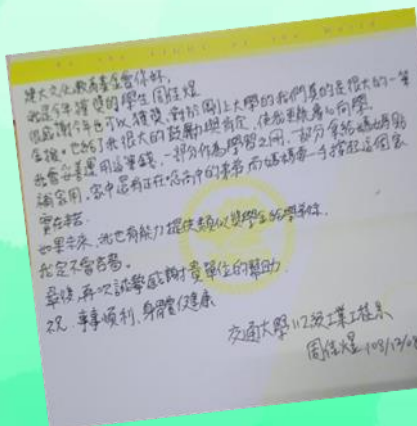 建大文化教育基金會你好,
我是今年獲獎的學生周佳煜
很感謝今年也可以獲獎,對於剛上大學的我們真的是很大的一筆
金援。也給了我很大的鼓勵與肯定,使我更能專心向學。
我會妥善運用這筆錢,一部分作為學習之用,一部分拿給媽媽貼
補家用,家中還有正在唸高中的弟弟,而媽媽要一手撐起這個家
實在辛苦。
如果未來,我也有能力提供類似獎學金給學弟妹,
我定不會吝嗇。
最後,再次誠摯感謝貴單位的幫助.
祝 事事順利、身體健康
交通大學112級工業工程系
周佳煜